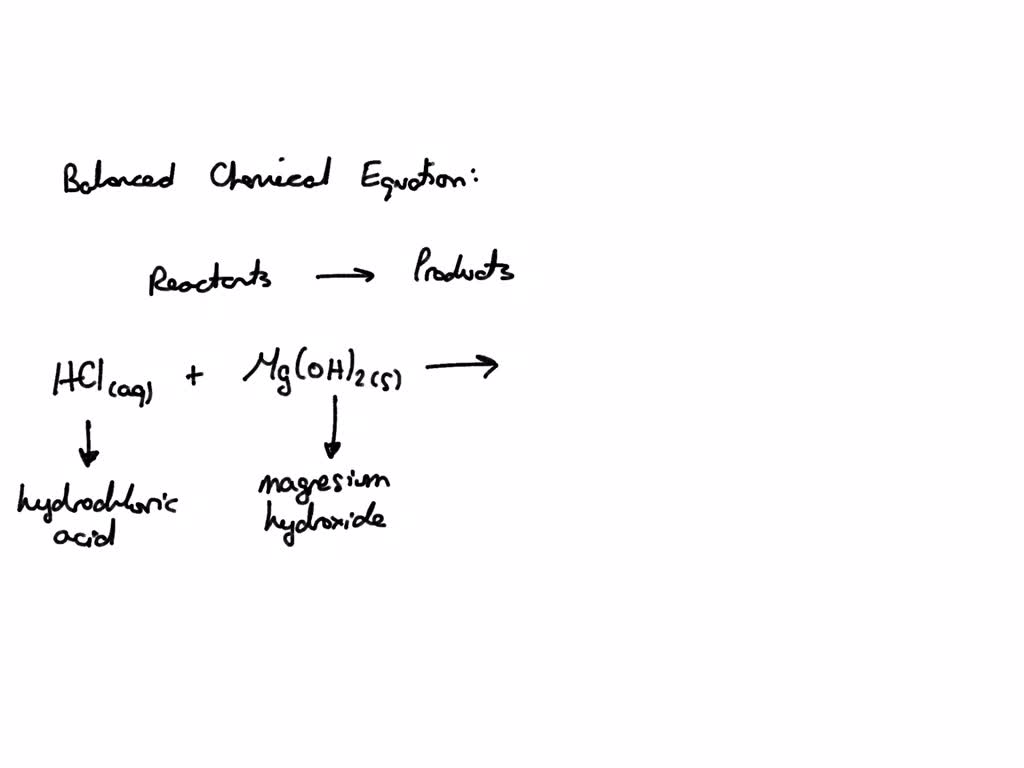 Balanced Chemical Equation:
Reactants → Products
HCl(aq) + Mg(OH)2(s) →
hydrochloric acid
magnesium hydroxide